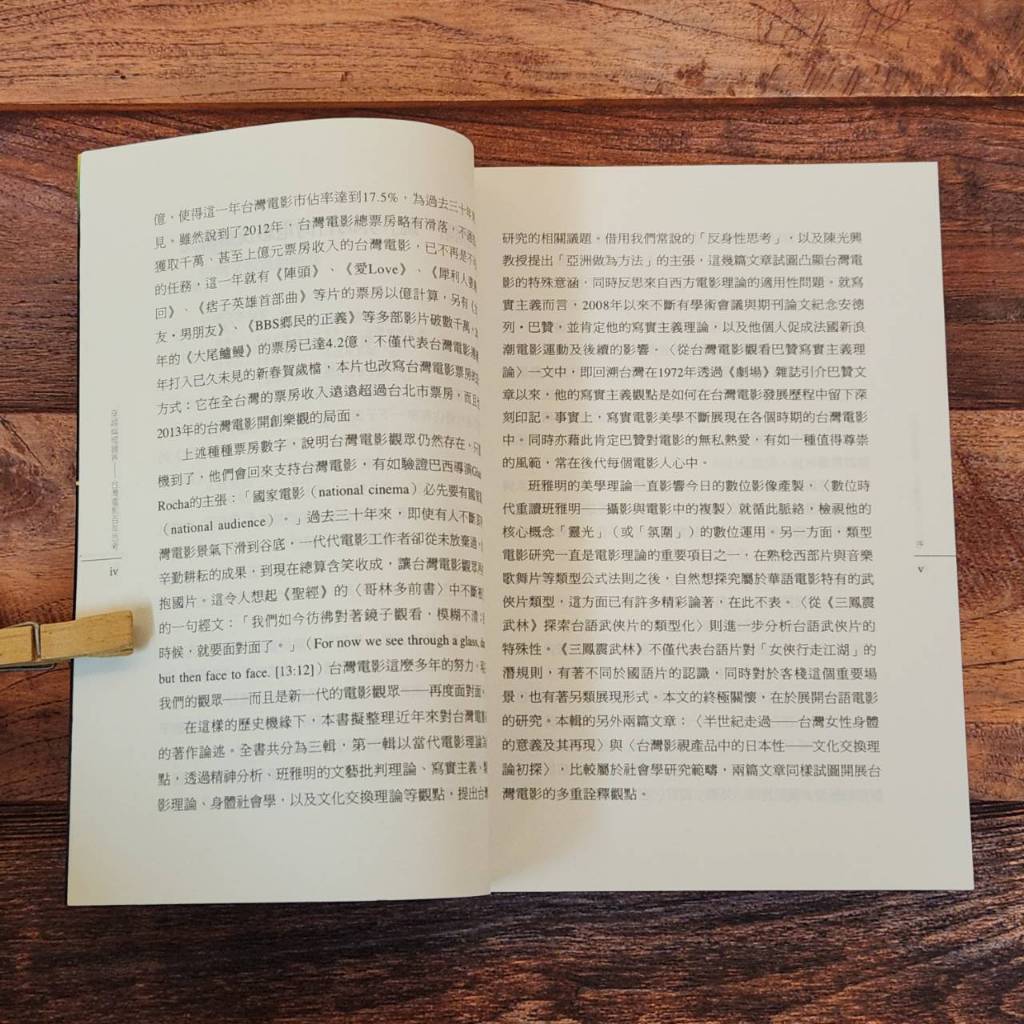 億，使得這一年台灣電影市佔率達到17.5%，為過去三十年
見。雖然說到了2012年，台灣電影總票房略有滑落，不過
獲取千萬、甚至上億元票房收入的台灣電影，已不再是不
的任務，這一年就有《陣頭》、《愛Love》、《犀利人妻
回》、《痞子英雄首部曲》等片的票房以億計算，另有《
友‧男朋友》、《BBS鄉民的正義》等多部影片破數千萬，
年的《大尾鱸鰻》的票房已達4.2億，不僅代表台灣電影
年打入已久未見的新春賀歲檔，本片也改寫台灣電影票房
方式：它在全台灣的票房收入遠遠超過台北市票房，而且
2013年的台灣電影開創樂觀的局面。
上述種種票房數字，說明台灣電影觀眾仍然存在，只
機到了，他們會回來支持台灣電影，有如驗證巴西導演
Rocha的主張：「國家電影（national cinema）必先要有國家
（national audience）。」過去三十年來，即使有人不斷
灣電影景氣下滑到谷底，一代代電影工作者卻從未放棄過，
辛勤耕耘的成果，到現在總算含笑收成，讓台灣電影觀眾
抱國片。這令人想起《聖經》的〈哥林多前書〉中不斷
的一句經文：「我們如今彷彿對著鏡子觀看，模糊不清；
時候，就要面對面了。」（For now we see through a glass,
but then face to face. [13:12]）台灣電影這麼多年的努力，
我們的觀眾——而且是新一代的電影觀眾——再度面對面。
在這樣的歷史機緣下，本書擬整理近年來對台灣電
的著作論述。全書共分為三輯，第一輯以當代電影理論
點，透過精神分析、班雅明的文藝批判理論、寫實主義、
影理論、身體社會學，以及文化交換理論等觀點，提出台
iv
研究的相關議題。借用我們常說的「反身性思考」，以及陳光興
教授提出「亞洲做為方法」的主張，這幾篇文章試圖凸顯台灣電
影的特殊意涵，同時反思來自西方電影理論的適用性問題。就寫
實主義而言，2008年以來不斷有學術會議與期刊論文紀念安德
列‧巴贊，並肯定他的寫實主義理論，以及他個人促成法國新浪
潮電影運動及後續的影響，〈從台灣電影觀看巴贊寫實主義理
論〉一文中，即回溯台灣在1972年透過《劇場》雜誌引介巴贊文
章以來，他的寫實主義觀點是如何在台灣電影發展歷程中留下深
刻印記。事實上，寫實電影美學不斷展現在各個時期的台灣電影
中。同時亦藉此肯定巴贊對電影的無私熱愛，有如一種值得尊崇
的風範，常在後代每個電影人心中。
班雅明的美學理論一直影響今日的數位影像產製，〈數位時
代重讀班雅明——攝影與電影中的複製〉就循此脈絡，檢視他的
核心概念「靈光」（或「氛圍」）的數位運用。另一方面，類型
電影研究一直是電影理論的重要項目之一，在熟稔西部片與音樂
歌舞片等類型公式法則之後，自然想探究屬於華語電影特有的武
俠片類型，這方面已有許多精彩論著，在此不表。〈從《三鳳震
武林》探索台語武俠片的類型化〉則進一步分析台語武俠片的
特殊性。《三鳳震武林》不僅代表台語片對「女俠行走江湖」的
潛規則，有著不同於國語片的認識，同時對於客棧這個重要場
景，也有著另類展現形式。本文的終極關懷，在於展開台語電影
的研究。本輯的另外兩篇文章：〈半世紀走過——台灣女性身體
的意義及其再現〉與〈台灣影視產品中的日本性——文化交換理
論初探〉，比較屬於社會學研究範疇，兩篇文章同樣試圖開展台
灣電影的多重詮釋觀點。
序
v